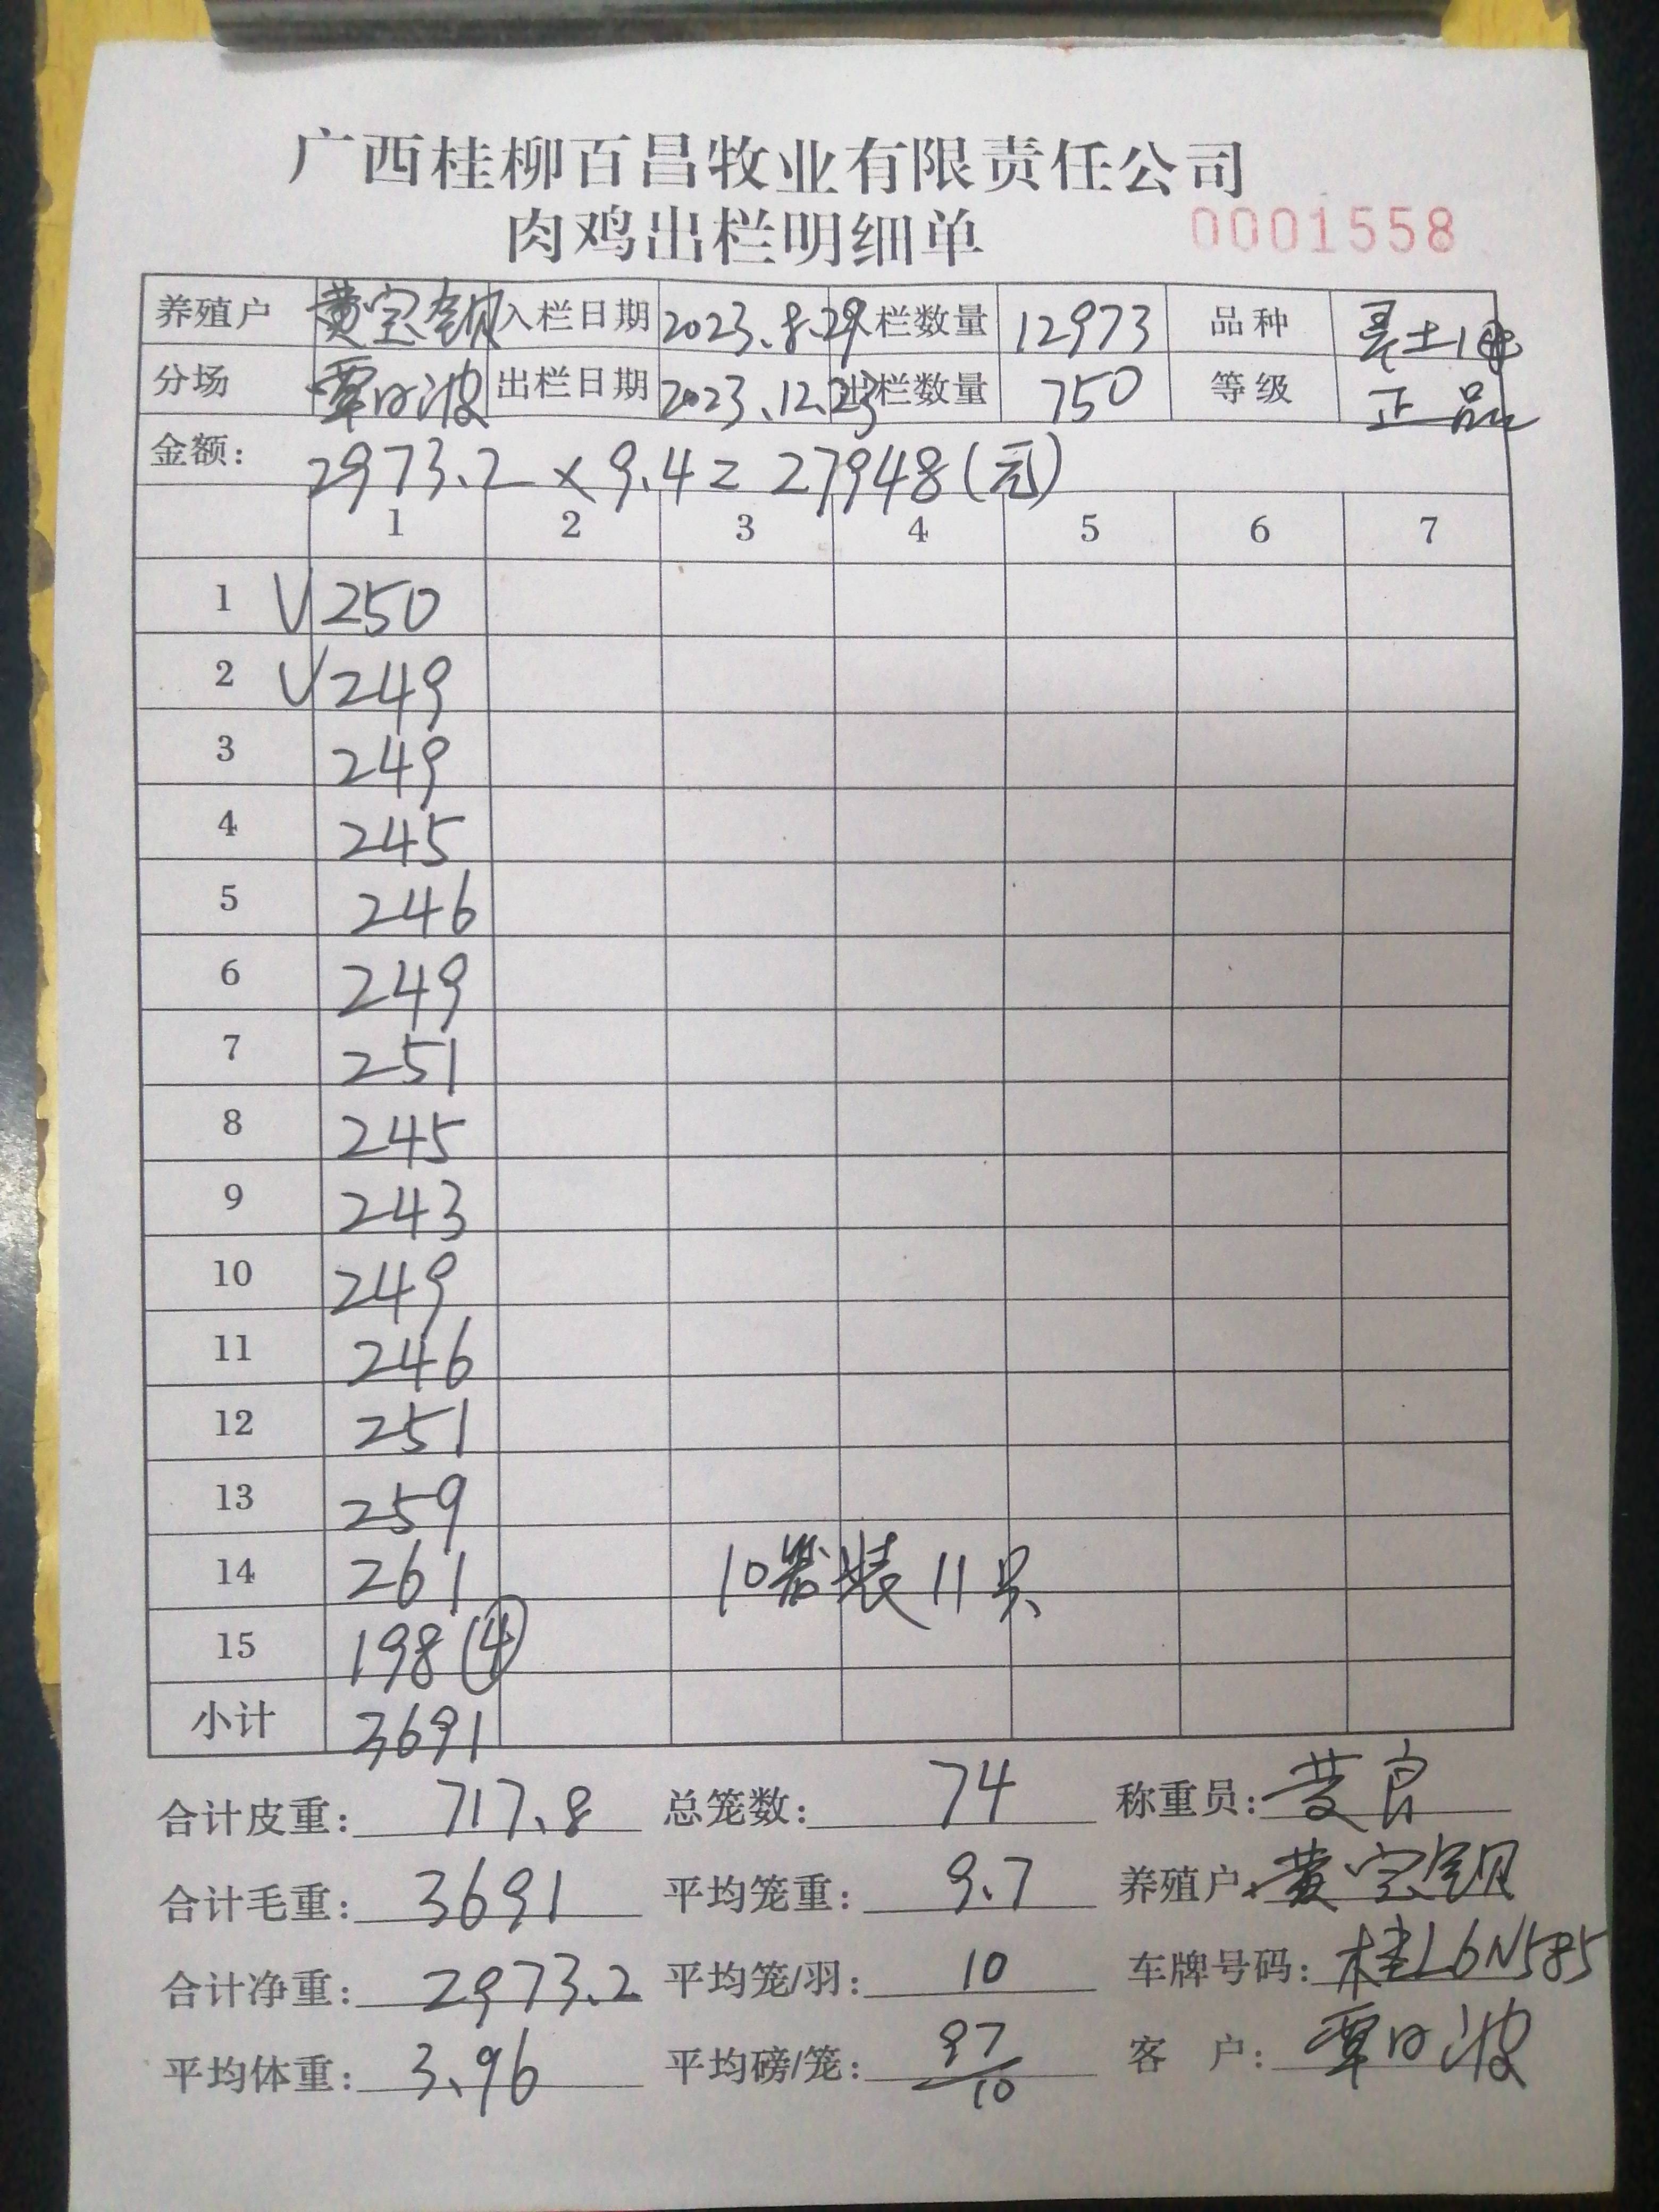 广西桂柳百昌牧业有限责任公司
肉鸡出栏明细单 0001558
养殖户 黄宝钡 入栏日期 2023.8.29 入栏数量 12973 品种 土1
分场 覃日波 出栏日期 2023.12.23 出栏数量 750 等级 正品
金额: 2973.2×9.4=27948(元)
1 2 3 4 5 6 7
1 √250
2 √249
3 249
4 245
5 246
6 249
7 251
8 245
9 243
10 249
11 246
12 251
13 259
14 261 10 装11只
15 198(4)
小计 3691
合计皮重: 717.8 总笼数: 74 称重员: 黄良
合计毛重: 3691 平均笼重: 9.7 养殖户: 黄宝钡
合计净重: 2973.2 平均笼/羽: 10 车牌号码: 桂L6N585
平均体重: 3.96 平均磅/笼: 97/10 客户: 覃日波